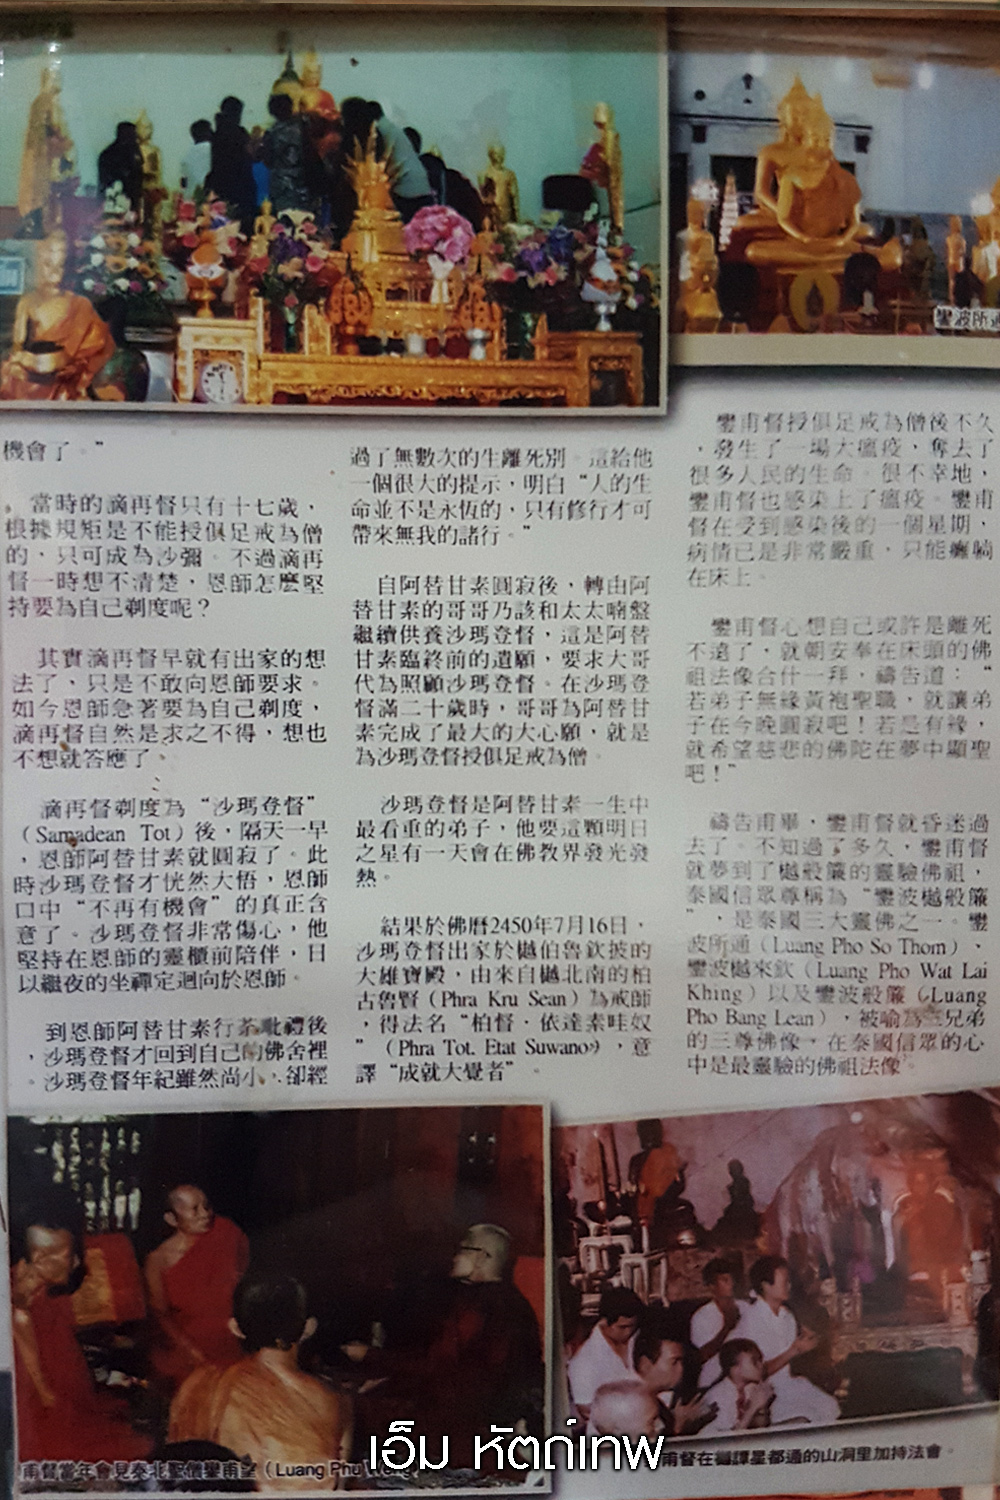 鑾波所通
機會了。”
當時的謫再督只有十七歲，
根據規矩是不能授俱足戒為僧
的，只可成為沙彌。不過謫再
督一時想不清楚，恩師怎麽堅
持要為自己剃度呢？
其實謫再督早就有出家的想
法了，只是不敢向恩師要求。
如今恩師急著要為自己剃度，
謫再督自然是求之不得，想也
不想就答應了、
謫再督剃度為“沙瑪登督”
（Samadean Tot）後，隔天一早
，恩師阿替甘素就圓寂了。此
時沙瑪登督才恍然大悟，恩師
口中“不再有機會”的真正含
意了。沙瑪登督非常傷心，他
堅持在恩師的靈櫃前陪伴，日
以繼夜的坐禪定迴向於恩師。
到恩師阿替甘素行茶毗禮後
，沙瑪登督才回到自己的佛舍裡
。沙瑪登督年紀雖然尚小，卻經
過了無數次的生離死別。這給他
一個很大的提示，明白“人的生
命並不是永恆的，只有修行才可
帶來無我的諸行。”
自阿替甘素圓寂後，轉由阿
替甘素的哥哥乃該和太太喃盤
繼續供養沙瑪登督，這是阿替
甘素臨終前的遺願，要求大哥
代為照顧沙瑪登督。在沙瑪登
督滿二十歲時，哥哥為阿替甘
素完成了最大的大心願，就是
為沙瑪登督授俱足戒為僧。
沙瑪登督是阿替甘素一生中
最看重的弟子，他要這顆明日
之星有一天會在佛教界發光發
熱。
結果於佛曆2450年7月16日，
沙瑪登督出家於樾伯魯欽披的
大雄寶殿，由來自樾北南的柏
古魯賢（Phra Kru Sean）為戒師
，得法名“柏督·依達素哇奴
”（Phra Tot. Etat Suwano），意
譯“成就大覺者”。
鑾甫督授俱足戒為僧後不久
，發生了一場大瘟疫，奪去了
很多人民的生命。很不幸地，
鑾甫督也感染上了瘟疫。鑾甫
督在受到感染後的一個星期，
病情已是非常嚴重，只能癱躺
在床上。
鑾甫督心想自己或許是離死
不遠了，就朝安奉在床頭的佛
祖法像合什一拜，禱告道：“
若弟子無緣黃袍聖職，就讓弟
子在今晚圓寂吧！若是有緣，
就希望慈悲的佛陀在夢中顯聖
吧！”
禱告甫畢，鑾甫督就昏迷過
去了。不知過了多久，鑾甫督
就夢到了樾般簾的靈驗佛祖，
泰國信眾尊稱為“鑾波樾般簾
”，是泰國三大靈佛之一。鑾
波所通（Luang Pho So Thorn）、
鑾波樾來欽（Luang Pho Wat Lai
Khing）以及鑾波般簾（Luang
Pho Bang Lean），被喻為三兄弟
的三尊佛像，在泰國信眾的心
中是最靈驗的佛祖法像。
甫督當年會見泰北聖僧鑾甫望（Luang Phu
甫督在 譚星都通的山洞里加持法會。
เอ็ม หัตถ์เทพ